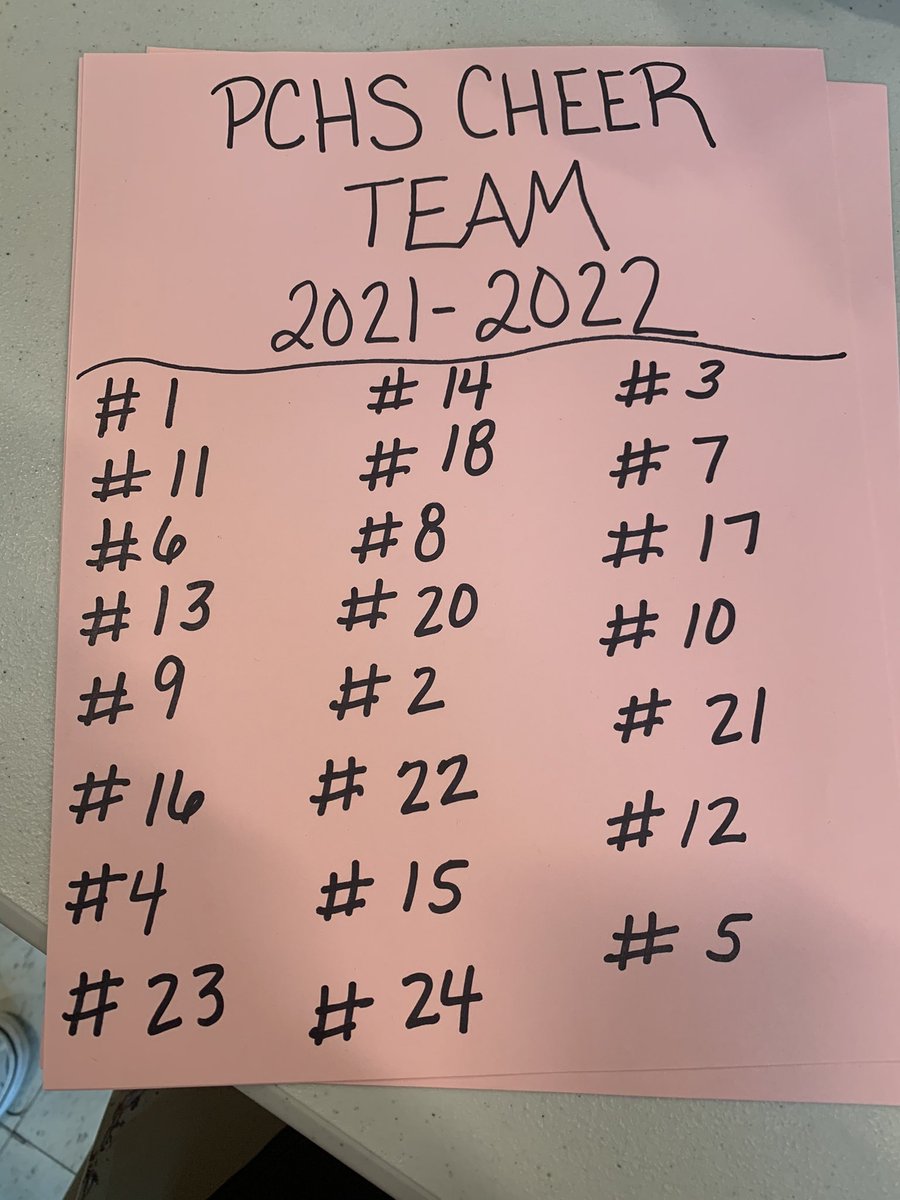 PCHS CHEER
TEAM
2021-2022
#1 #14 #3
#11 #18 #7
#6 #8 #17
#13 #20 #10
#9 #2 #21
#16 #22 #12
#4 #15 #5
#23 #24